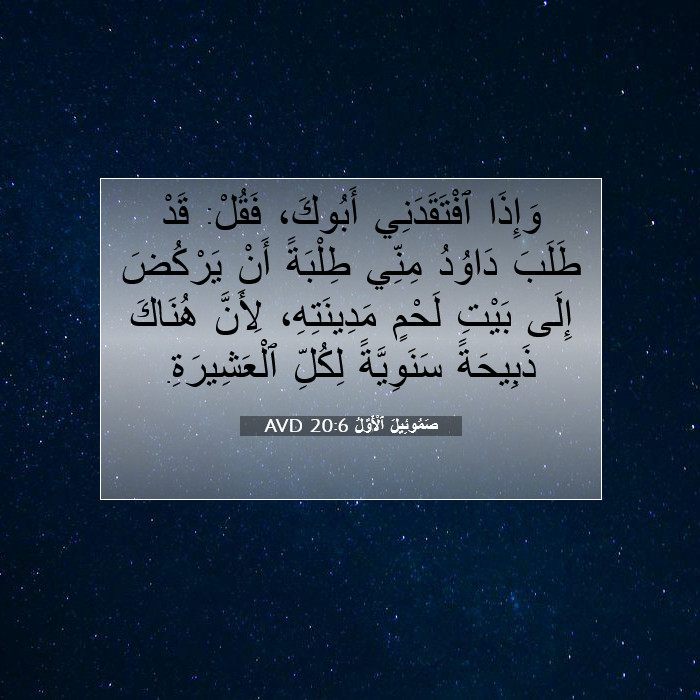 وَإِذَا ٱفْتَقَدَنِي أَبُوكَ، فَقُلْ: قَدْ
طَلَبَ دَاوُدُ مِنِّي طِلْبَةً أَنْ يَرْكُضَ
إِلَى بَيْتِ لَحْمٍ مَدِينَتِهِ، لِأَنَّ هُنَاكَ
ذَبِيحَةً سَنَوِيَّةً لِكُلِّ ٱلْعَشِيرَةِ.
صَمُوئِيلَ ٱلْأَوَّلُ 20:6 AVD